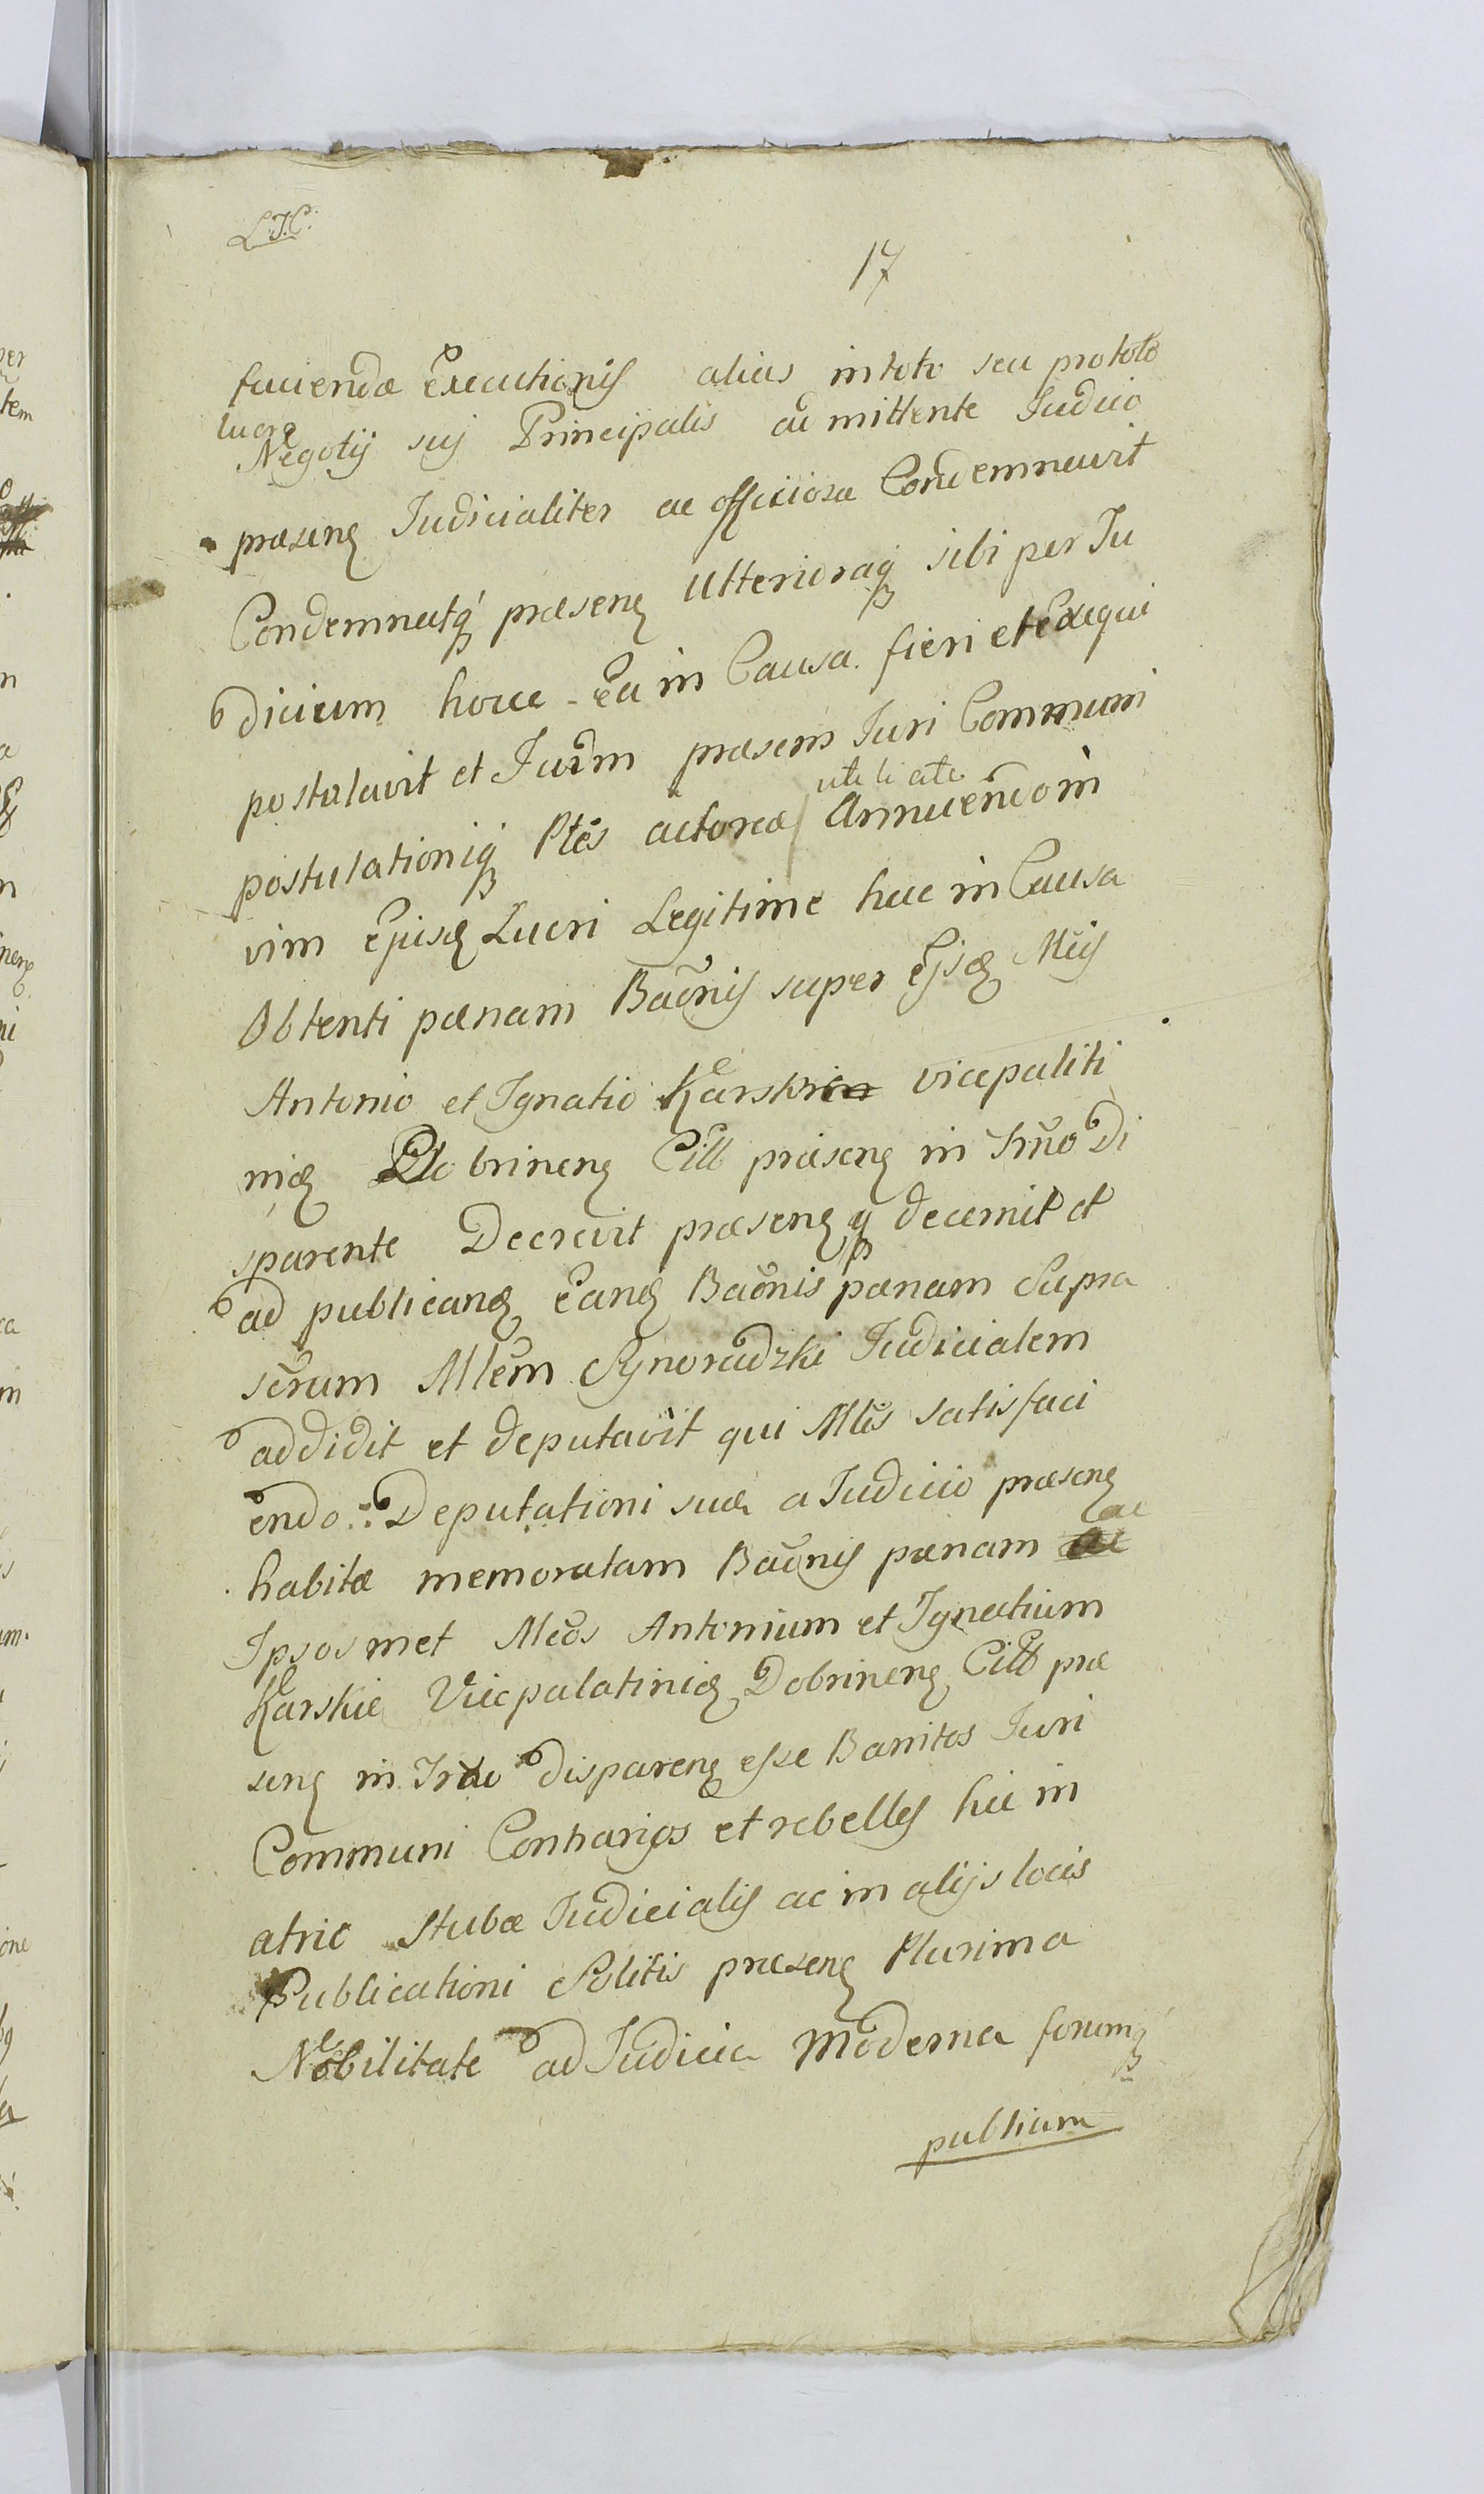 L.J.C.
17
faciendæ Executionis alias in toto seu pro toto
lucro
Negotij sui Principalis admittente Judicio
præsenẽ Judicialiter ac officiose Condemnavit
Condemnatq́ præsenẽ Ulterioraq́ sibi per Ju
dicium hocce Ea in Causa fieri et exequi
postulavit et Judm præsens Juri Communi
postulationiq́ Ptĕs actoreæ Annuendo in
vim Ejusd Lucri Legitime hac in Causa
Obtenti pænam Baõnis super Ejsd Mcis
Antonio et Ignatio Karskie vicepaliti
nid Dobrinenẽ Citt præsenẽ in Trño Di
sparente Decrevit præsenẽq́ decernit et
ad publicand Eand Baõnis pænam Supra
scrum Mlem Synoradzki Judicialem
addidit et deputavit qui Mlis satisfaci
endo Deputationi suæ a Judicio præsenẽ
habitæ memoratam Baõnis pænam ac
Ipsosmet Mcos Antonium et Ignatium
Karskie Vicepalatinid Dobrinenẽ Citt præ
senẽ in Trño disparenẽ esse Banitos Juri
Communi Contrarios et rebelles hic in
atrio Stubæ Judicialis ac in alijs locis
Publicationi Solitis præsenẽ Plurima
Nobilitate ad Judicia Moderna forumq́
publicum